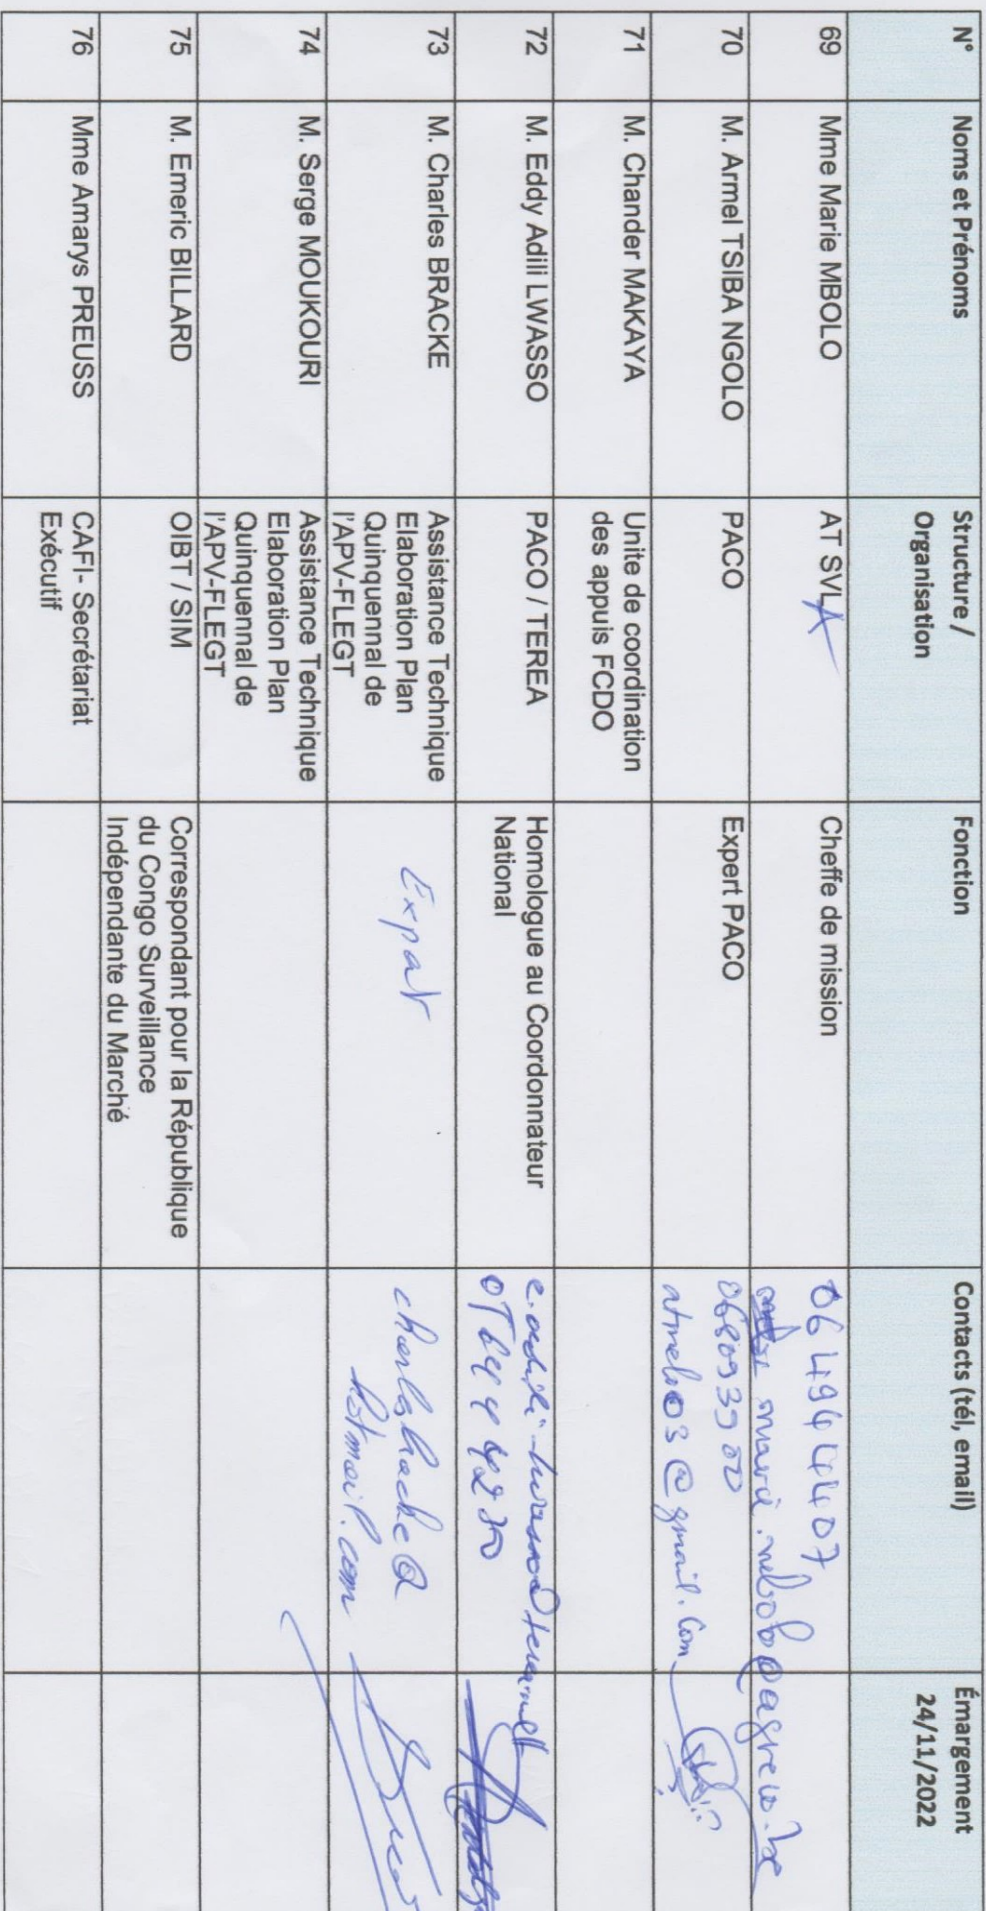 N°
Noms et Prénoms
Structure /
Organisation
Fonction
Contacts (tél, email)
Émargement
24/11/2022
69
Mme Marie MBOLO
AT SVLA
Cheffe de mission
70
M. Armel TSIBA NGOLO
PACO
Expert PACO
@gmail.com
71
M. Chander MAKAYA
Unite de coordination
des appuis FCDO
72
M. Eddy Adili LWASSO
PACO / TEREA
Homologue au Coordonnateur
National
73
M. Charles BRACKE
Assistance Technique
Elaboration Plan
Quinquennal de
l'APV-FLEGT
Expat
hotmail.com
74
M. Serge MOUKOURI
Assistance Technique
Elaboration Plan
Quinquennal de
l'APV-FLEGT
75
M. Emeric BILLARD
OIBT / SIM
Correspondant pour la République
du Congo Surveillance
Indépendante du Marché
76
Mme Amarys PREUSS
CAFI- Secrétariat
Exécutif